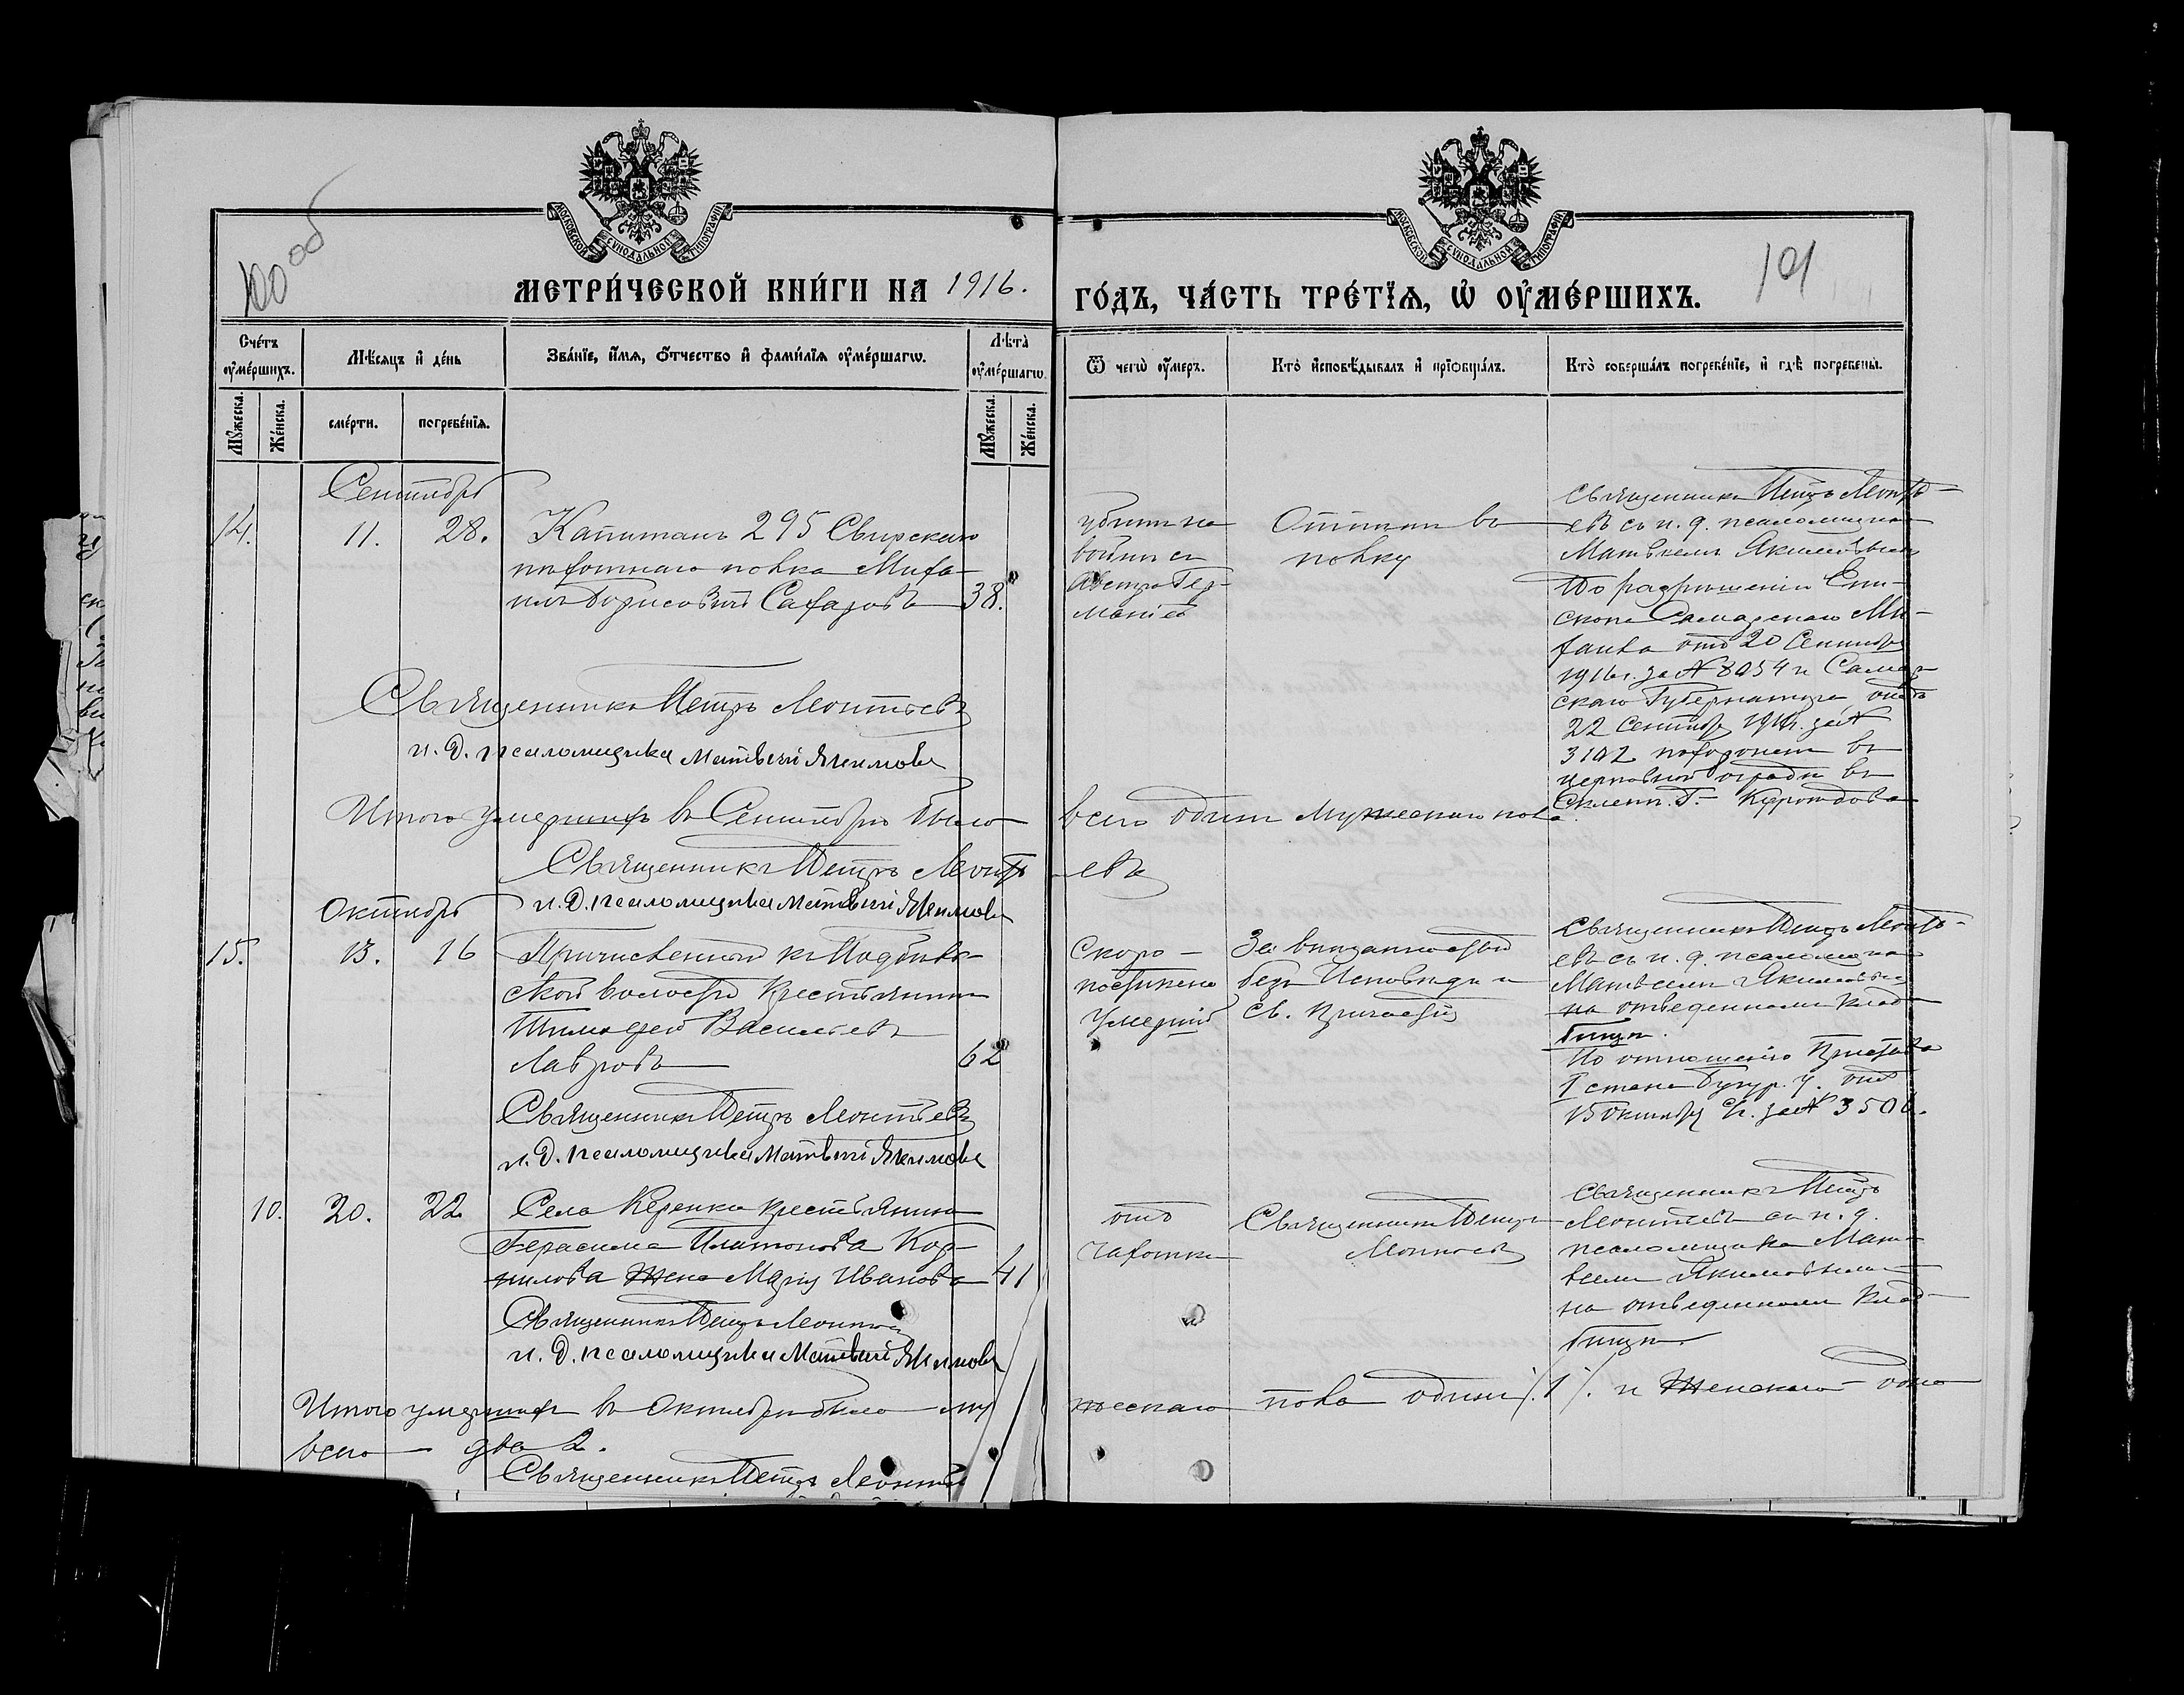 100 об
101
МОСКОВСКОЙ СѴНОДАЛЬНОЙ ТИПОГРАФІИ
МОСКОВСКОЙ СѴНОДАЛЬНОЙ ТИПОГРАФІИ
МЕТРИ́ЧЕСКОЙ КНИ́ГИ НА 1916. ГО́ДЪ, ЧА́СТЬ ТРЕ́ТЇѦ, Ѡ҆ ОУ҆МЕ́РШИХЪ.
Сче́тъ оу҆ме́ршихъ.
Мѣ́сѧцъ и҆ де́нь
Зва́нїе, и҆́мѧ, ѻ҆́тчество и҆ фами́лїѧ оу҆ме́ршагѡ.
Лѣ̀та оу҆ме́ршагѡ.
Ѿ чегѡ̀ оу҆́меръ.
Кто̀ и҆сповѣ́дывалъ и҆ прїѡбща́лъ.
Кто̀ соверша́лъ погребе́нїе, и҆ гдѣ̀ погребены̀.
Мꙋ́жеска.
Же́нска.
сме́рти.
погребе́нїѧ.
Мꙋ́жеска.
Же́нска.
Сентябрь
14.
11.
28.
Капитанъ 295 Свирскаго
пѣхотнаго полка Миха-
илъ Борисовичъ Сафаровъ
38.
убитъ на
войнѣ съ
Австро Гер-
маніей
Отпетъ въ
полку
Священникъ Петръ Леонть-
евъ съ и. д. псаломщика
Матвѣемъ Якимовымъ
По разрѣшенію Епи-
скопа Самарскаго Ми-
хаила отъ 20 Сентября
1916 г. за № 8054 и Самар-
скаго Губернатора отъ
22 Сентябр. 1916 г. за №
3102 похороненъ въ
церковной оградѣ въ
Склепѣ Г.
Священникъ Петръ Леонтьевъ
и. д. псаломщика Матвѣй Якимовъ
Итого умершихъ въ Сентябрѣ было всего одинъ мужескаго пола.
Священникъ Петръ Леонтьевъ
и. д. псаломщика Матвѣй Якимовъ
Октябрь
15.
13.
16
Причисленный къ Подбѣль-
ской волости крестьянинъ
Тимофей Васильевъ
Лавровъ
62
Скоро-
постижно
умершій
За внезапностью
безъ Исповѣди и
св. причастія
Священникъ Петръ Леонть-
евъ съ и. д. псаломщика
Матвѣемъ Якимовымъ
на отведенномъ клад-
бищѣ.
По отношенію Пристава
1 стана Бугур. у. отъ
15 октября с/г. за № 3506.
Священникъ Петръ Леонтьевъ
и. д. псаломщика Матвѣй Якимовъ
10.
20.
22
Села Керенки крестьянина
Герасима Платонова Кор-
нилова жена Марія Иванова
41
отъ
чахотки
Священникъ Петръ
Леонтьевъ
Священникъ Петръ
Леонтьевъ съ и. д.
псаломщика Мат-
вѣемъ Якимовымъ
на отведенномъ клад-
бищѣ.
Священникъ Петръ Леонтьевъ
и. д. псаломщика Матвѣй Якимовъ
Итого умершихъ въ Октябрѣ было мужескаго пола одинъ /.1/. и Женскаго одна
всего – два 2.
Священникъ Петръ Леонтьевъ